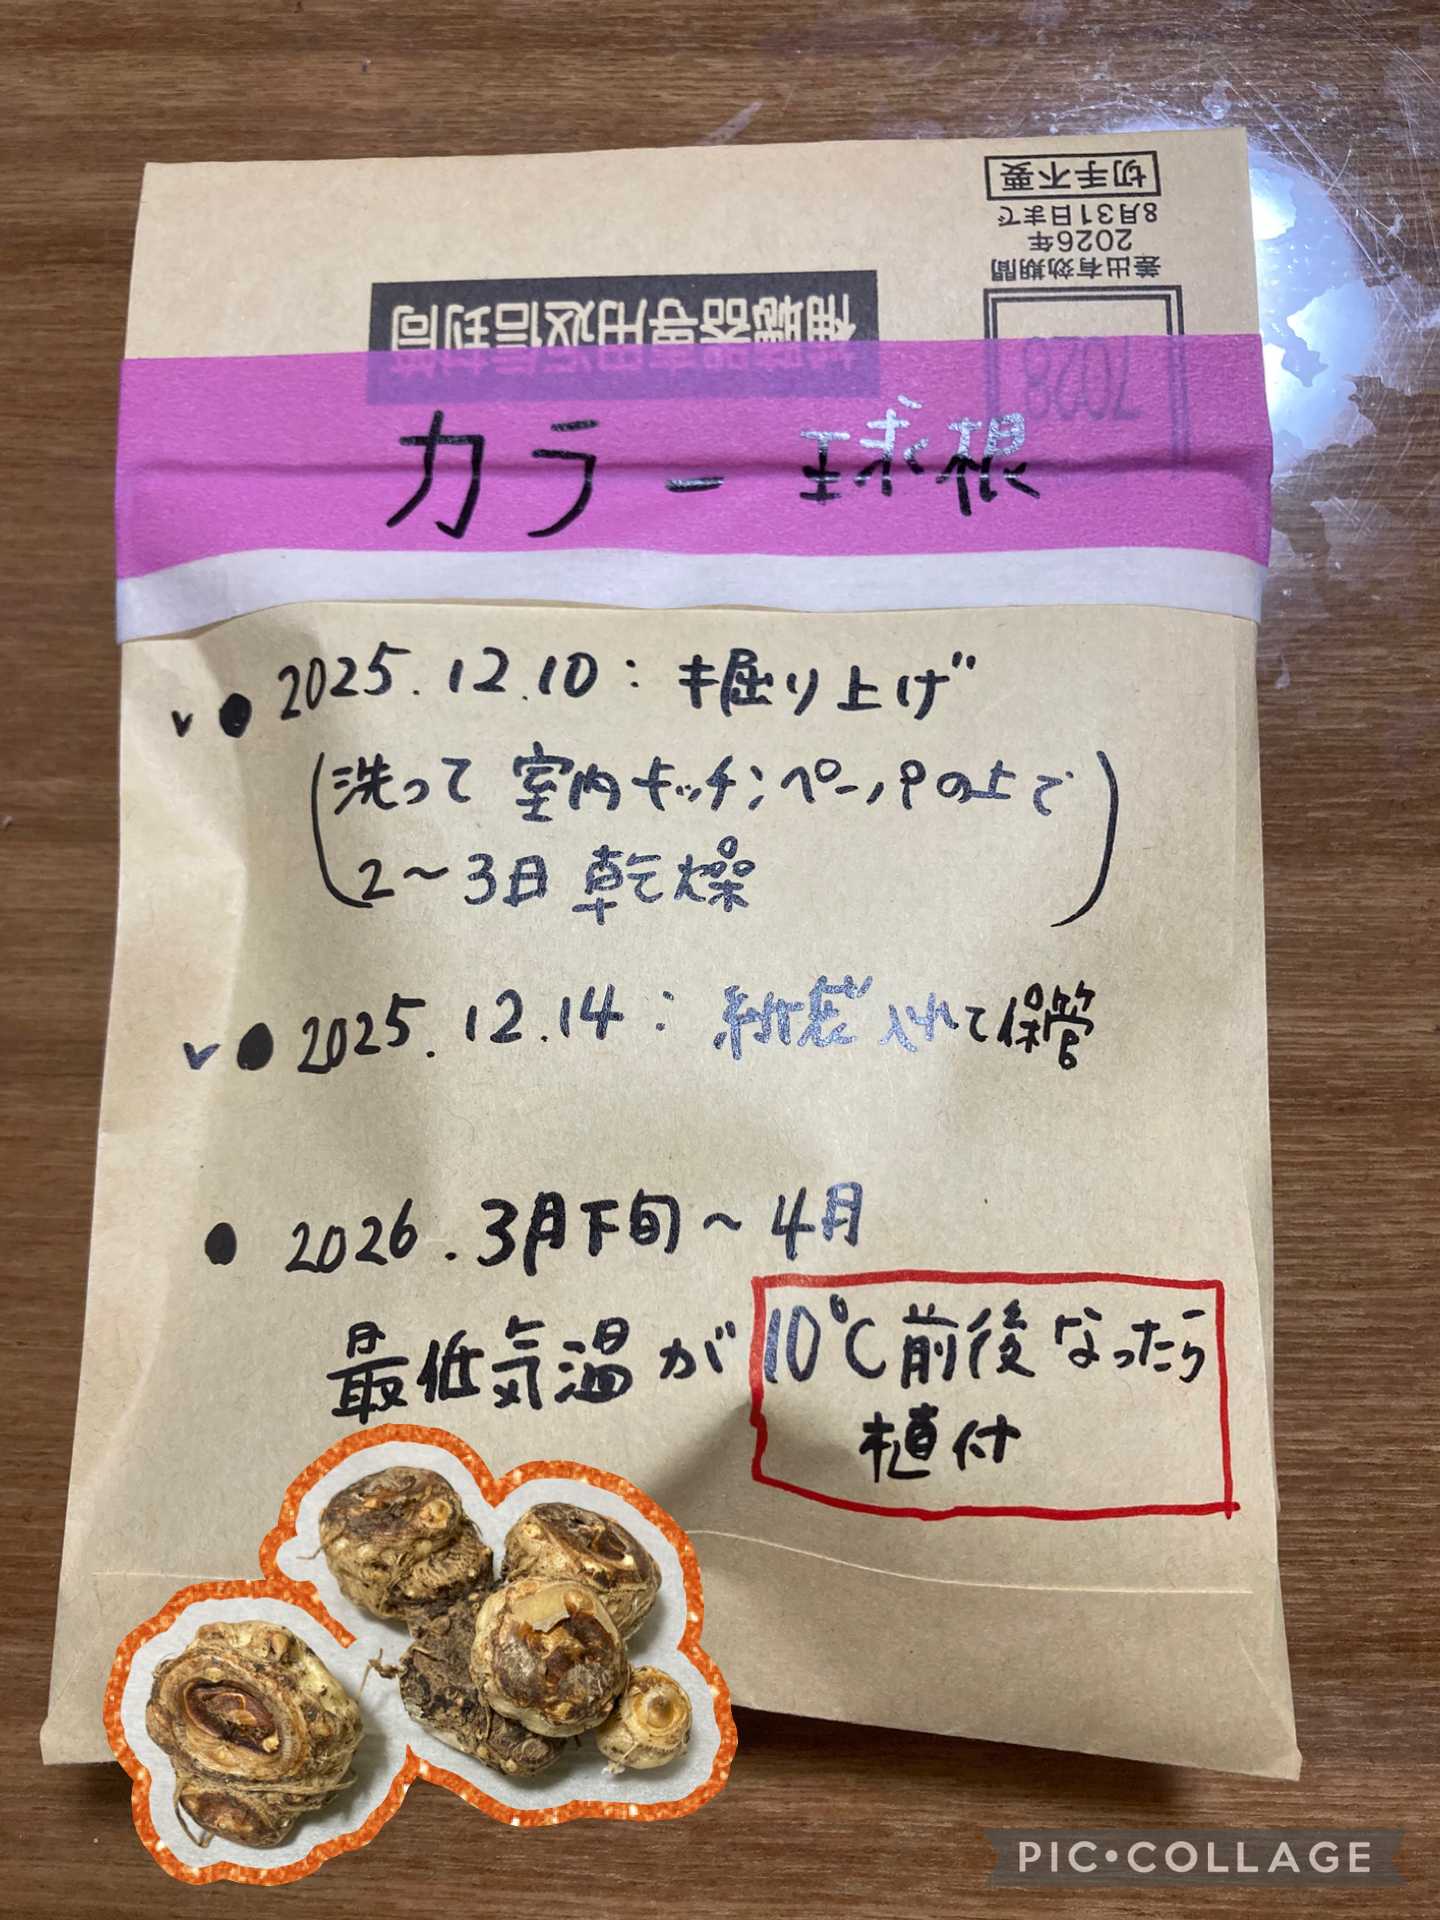 切手不要
8月31日まで
2026年
差出有効期間
補聴器専用返信封筒
7028
カラー 球根
2025.12.10:掘り上げ
(洗って 室内キッチンペーパの上で
2～3日 乾燥)
2025.12.14:紙袋入れて保管
2026.3月下旬～4月
最低気温が10℃前後なったら
植付
PIC•COLLAGE